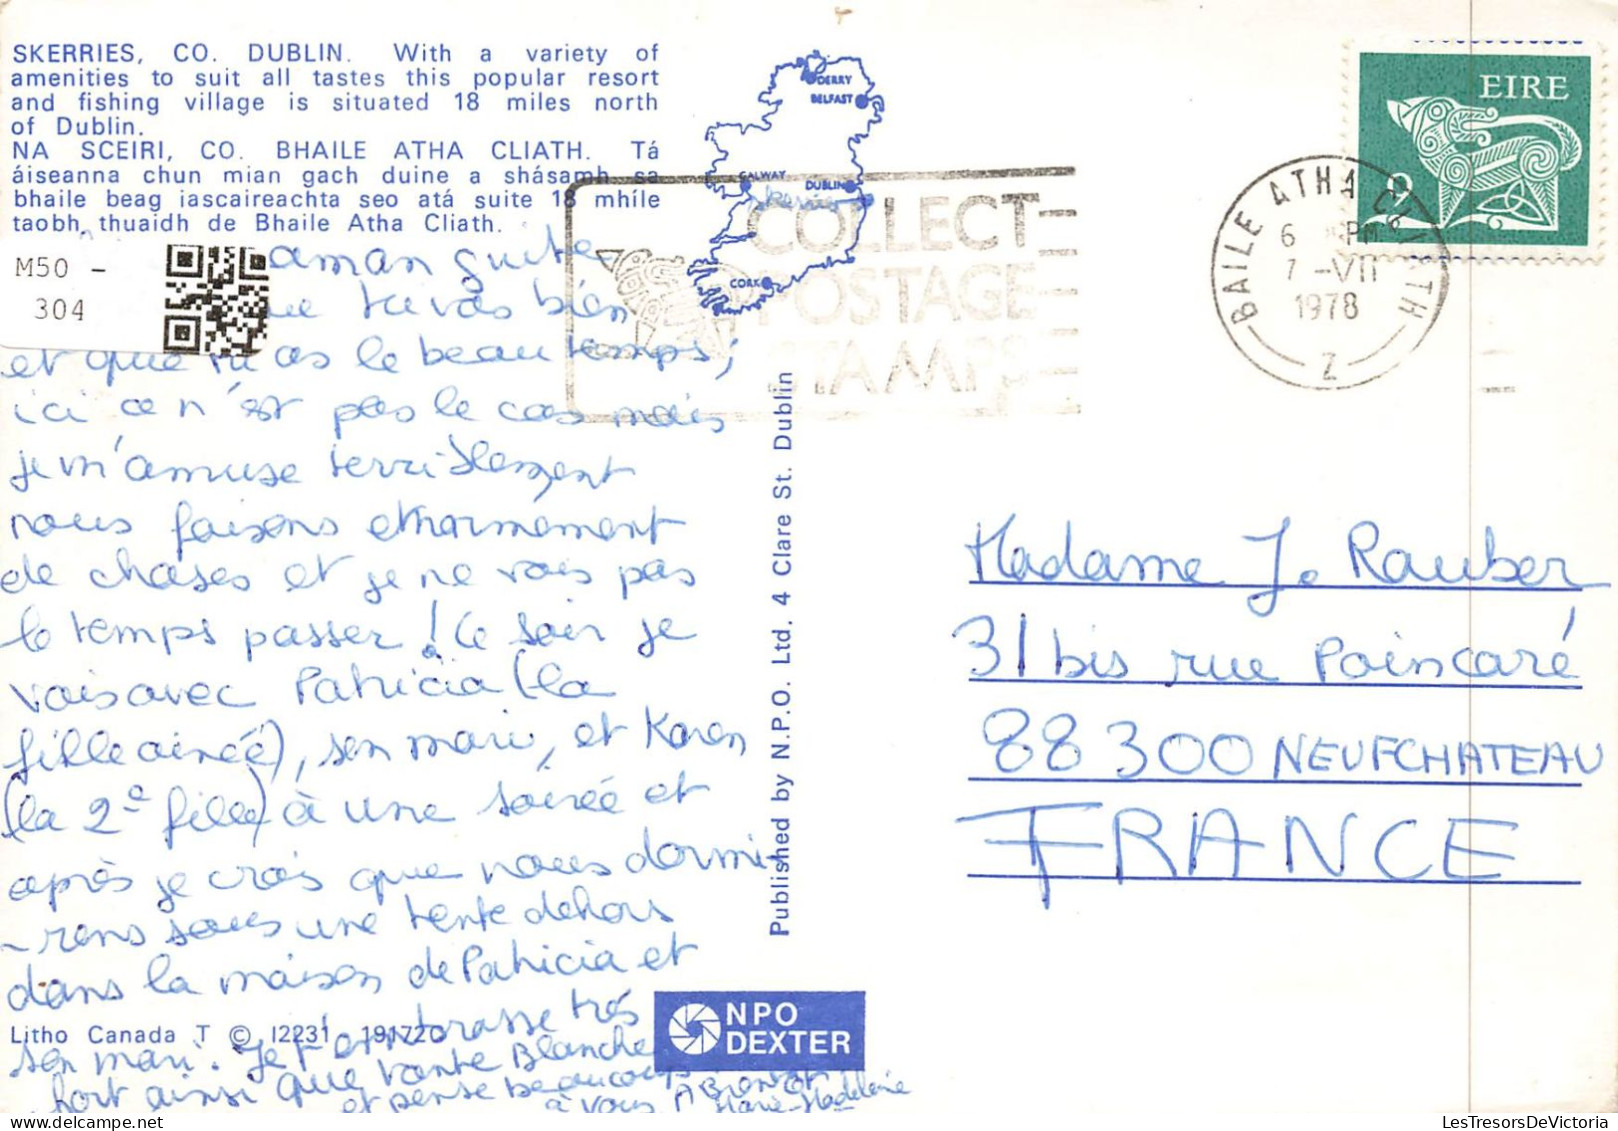 SKERRIES, CO. DUBLIN. With a variety of
amenities to suit all tastes this popular resort
and fishing village is situated 18 miles north
of Dublin.
NA SCEIRI, CO. BHAILE ATHA CLIATH. Tá
áiseanna chun mian gach duine a shásamh sa
bhaile beag iascaireachta seo atá suite 18 mhíle
taobh thuaidh de Bhaile Atha Cliath.
M50 -
304
aman
que tu vas bien
et que tu as le beau temps;
ici ce n'est pas le cas mais
je m'amuse terriblement
nous faisons
de choses et je ne vois pas
le temps passer! Ce soir je
vais avec Patricia (la
fille ainée), son mari, et Karen
(la 2e fille) à une soirée et
après je crois que nous dormi-
-rons sous une tente dehors
dans la maison de Patricia et
son mari. Je t'embrasse très
fort ainsi que tante Blanche
et pense beaucoup
à vous. A Bientot
Marie-Madeleine
Litho Canada T © I2231 191720
DERRY
BELFAST
GALWAY
DUBLIN
Skerries
CORK
COLLECT
POSTAGE
STAMPS
Published by N.P.O. Ltd. 4 Clare St. Dublin
NPO
DEXTER
EIRE
9
BAILE ATHA CLIATH
6 PM
7 -VII
1978
Z
Madame J. Rauber
31 bis rue Poincaré
88 300 NEUFCHATEAU
FRANCE
LesTresorsDeVictoria